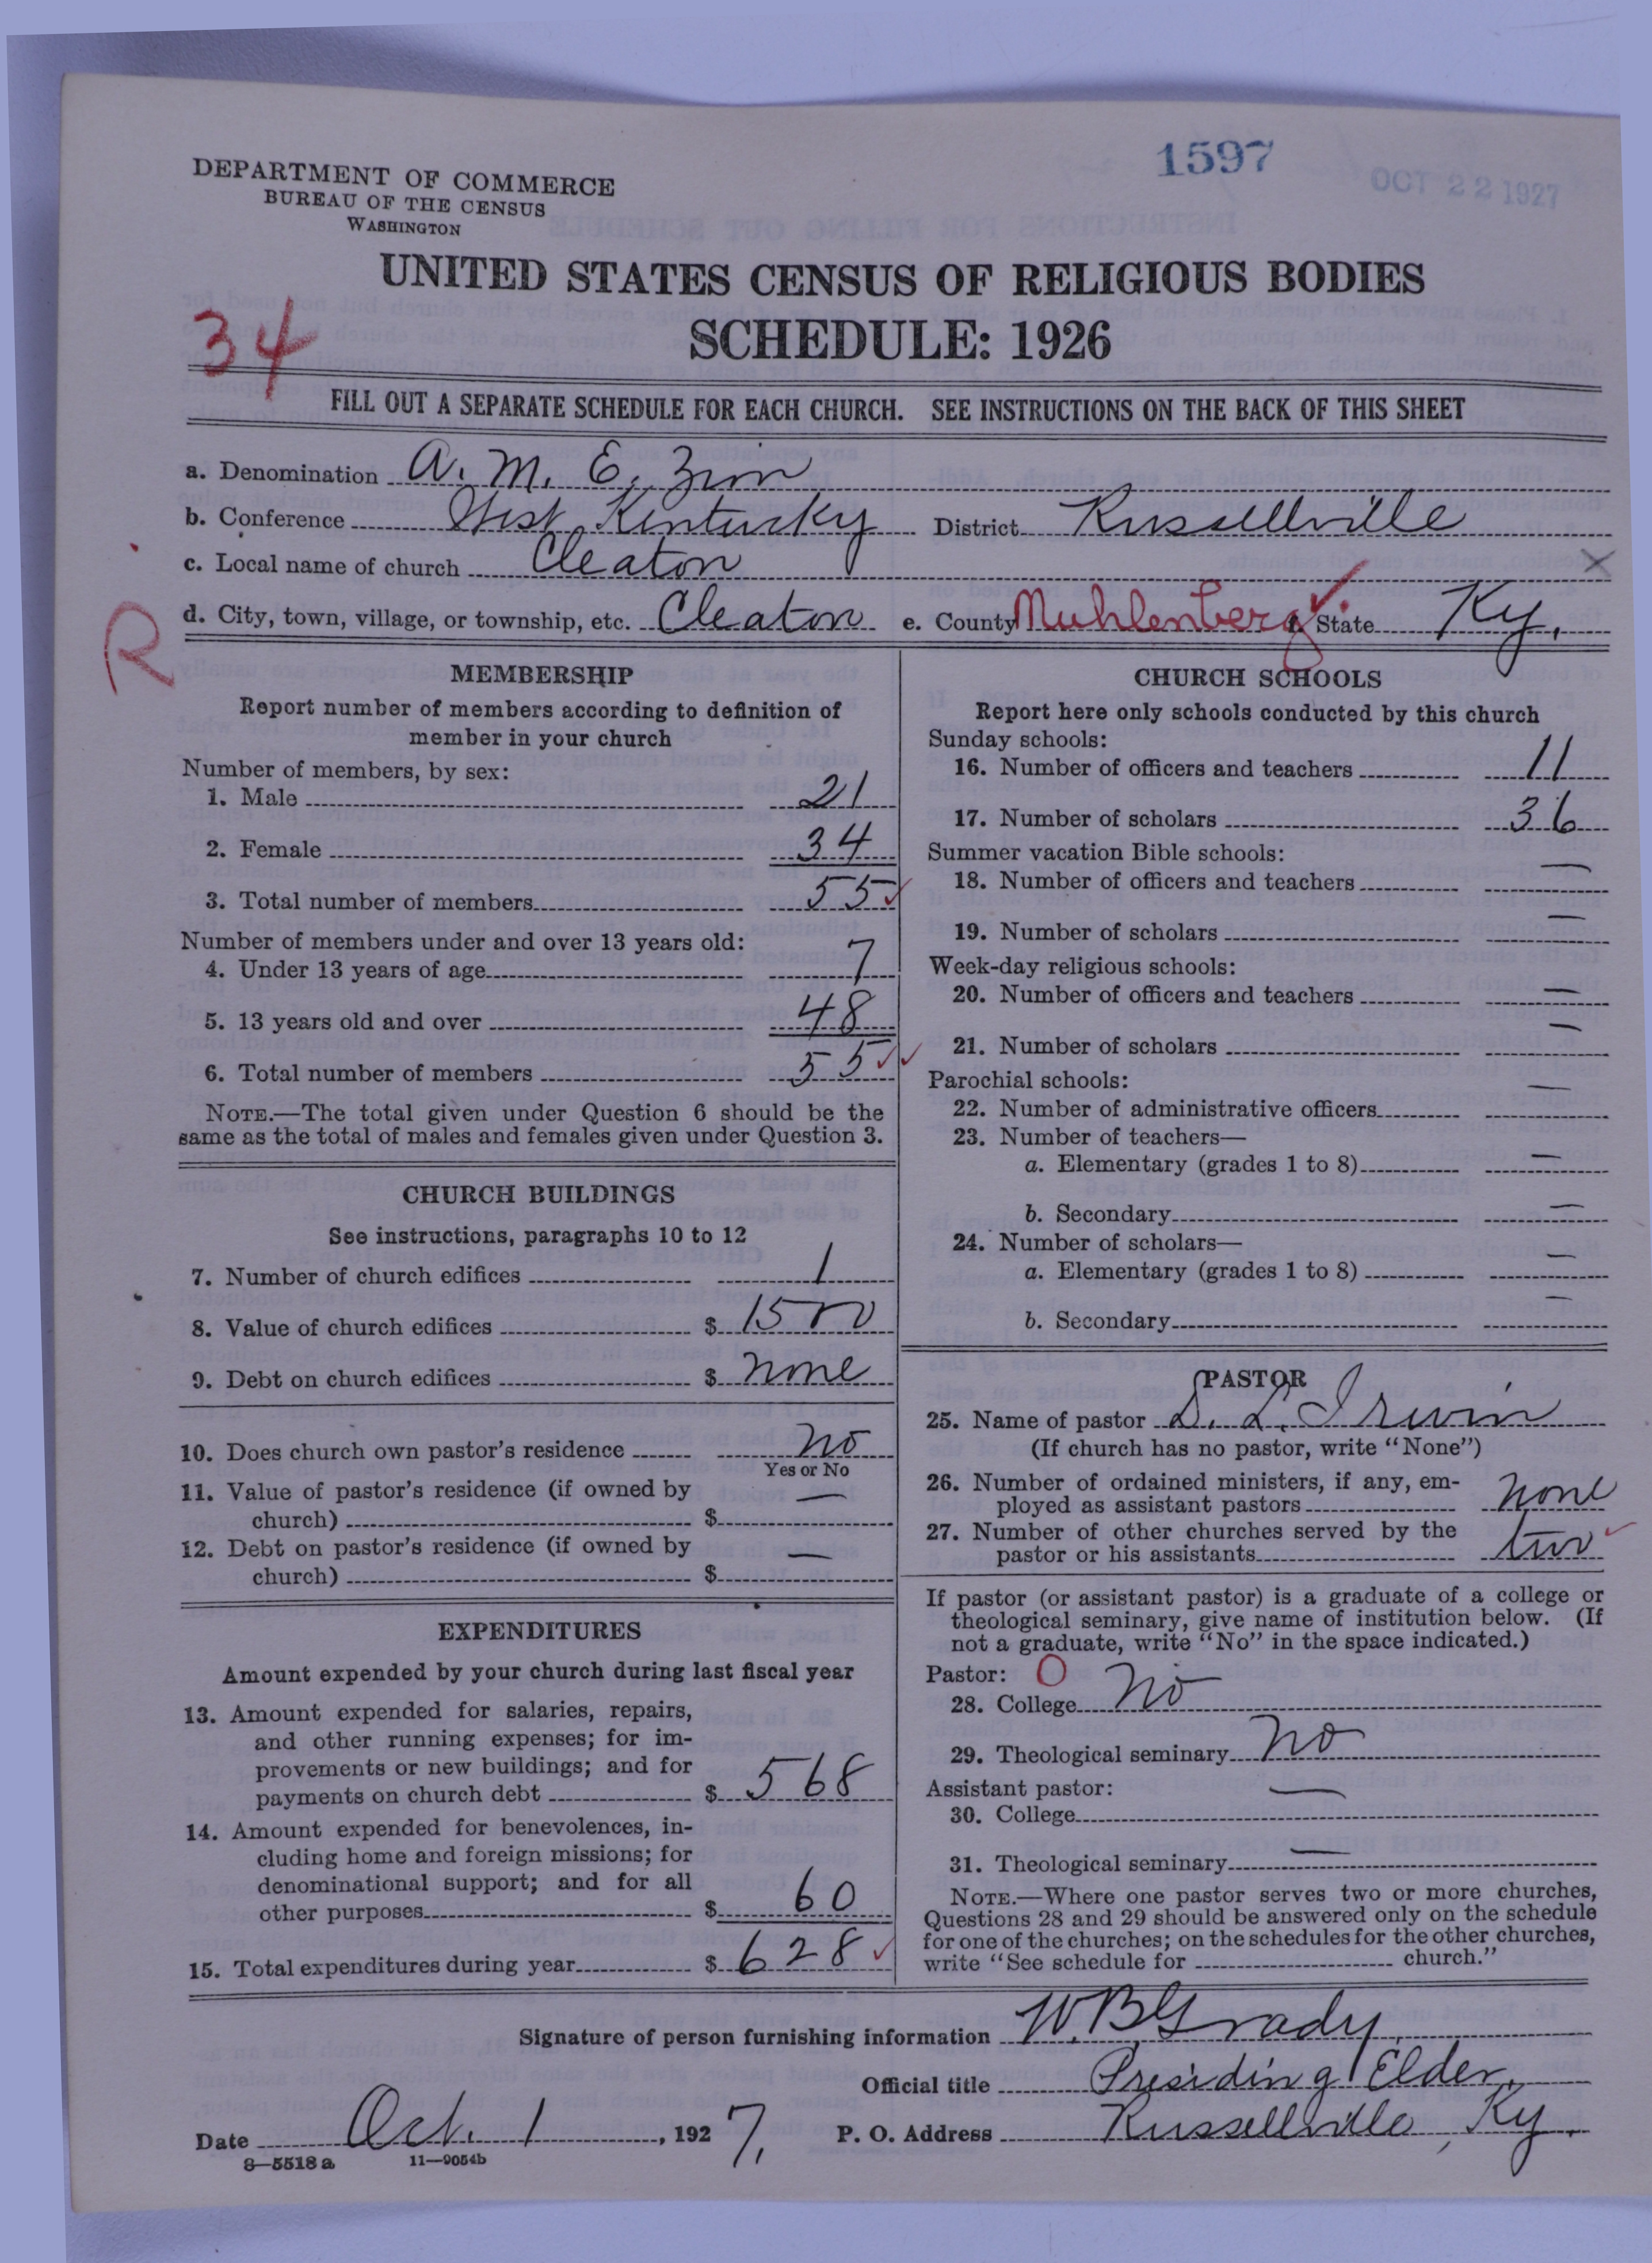 1597
OCT 22 1927
DEPARTMENT OF COMMERCE
BUREAU OF THE CENSUS
WASHINGTON
UNITED STATES CENSUS OF RELIGIOUS BODIES
34
SCHEDULE: 1926
FILL OUT A SEPARATE SCHEDULE FOR EACH CHURCH. SEE INSTRUCTIONS ON THE BACK OF THIS SHEET
a. Denomination A. M. E. Zion
b. Conference West Kentucky District Russellville
c. Local name of church Cleaton
d. City, town, village, or township, etc. Cleaton e. County Muhlenberg f. State Ky.
R
MEMBERSHIP
Report number of members according to definition of
member in your church
Number of members, by sex:
1. Male 21
2. Female 34
3. Total number of members 55
Number of members under and over 13 years old:
4. Under 13 years of age 7
5. 13 years old and over 48
6. Total number of members 55
NOTE.—The total given under Question 6 should be the
same as the total of males and females given under Question 3.
CHURCH BUILDINGS
See instructions, paragraphs 10 to 12
7. Number of church edifices 1
8. Value of church edifices $ 1500
9. Debt on church edifices $ none
10. Does church own pastor's residence no
Yes or No
11. Value of pastor's residence (if owned by
church) $ —
12. Debt on pastor's residence (if owned by
church) $ —
EXPENDITURES
Amount expended by your church during last fiscal year
13. Amount expended for salaries, repairs,
and other running expenses; for im-
provements or new buildings; and for
payments on church debt $ 568
14. Amount expended for benevolences, in-
cluding home and foreign missions; for
denominational support; and for all
other purposes $ 60
15. Total expenditures during year $ 628
CHURCH SCHOOLS
Report here only schools conducted by this church
Sunday schools:
16. Number of officers and teachers 11
17. Number of scholars 36
Summer vacation Bible schools:
18. Number of officers and teachers —
19. Number of scholars —
Week-day religious schools:
20. Number of officers and teachers —
21. Number of scholars —
Parochial schools:
22. Number of administrative officers —
23. Number of teachers—
a. Elementary (grades 1 to 8) —
b. Secondary —
24. Number of scholars—
a. Elementary (grades 1 to 8) —
b. Secondary —
PASTOR
25. Name of pastor S. L. Irwin
(If church has no pastor, write "None")
26. Number of ordained ministers, if any, em-
ployed as assistant pastors none
27. Number of other churches served by the
pastor or his assistants two
If pastor (or assistant pastor) is a graduate of a college or
theological seminary, give name of institution below. (If
not a graduate, write "No" in the space indicated.)
Pastor: O
28. College No
29. Theological seminary No
Assistant pastor:
30. College —
31. Theological seminary —
NOTE.—Where one pastor serves two or more churches,
Questions 28 and 29 should be answered only on the schedule
for one of the churches; on the schedules for the other churches,
write "See schedule for church."
Signature of person furnishing information W. B. Grady
Official title Presiding Elder
Date Oct. 1, 1927. P. O. Address Russellville, Ky.
8—5518 a 11—9054b